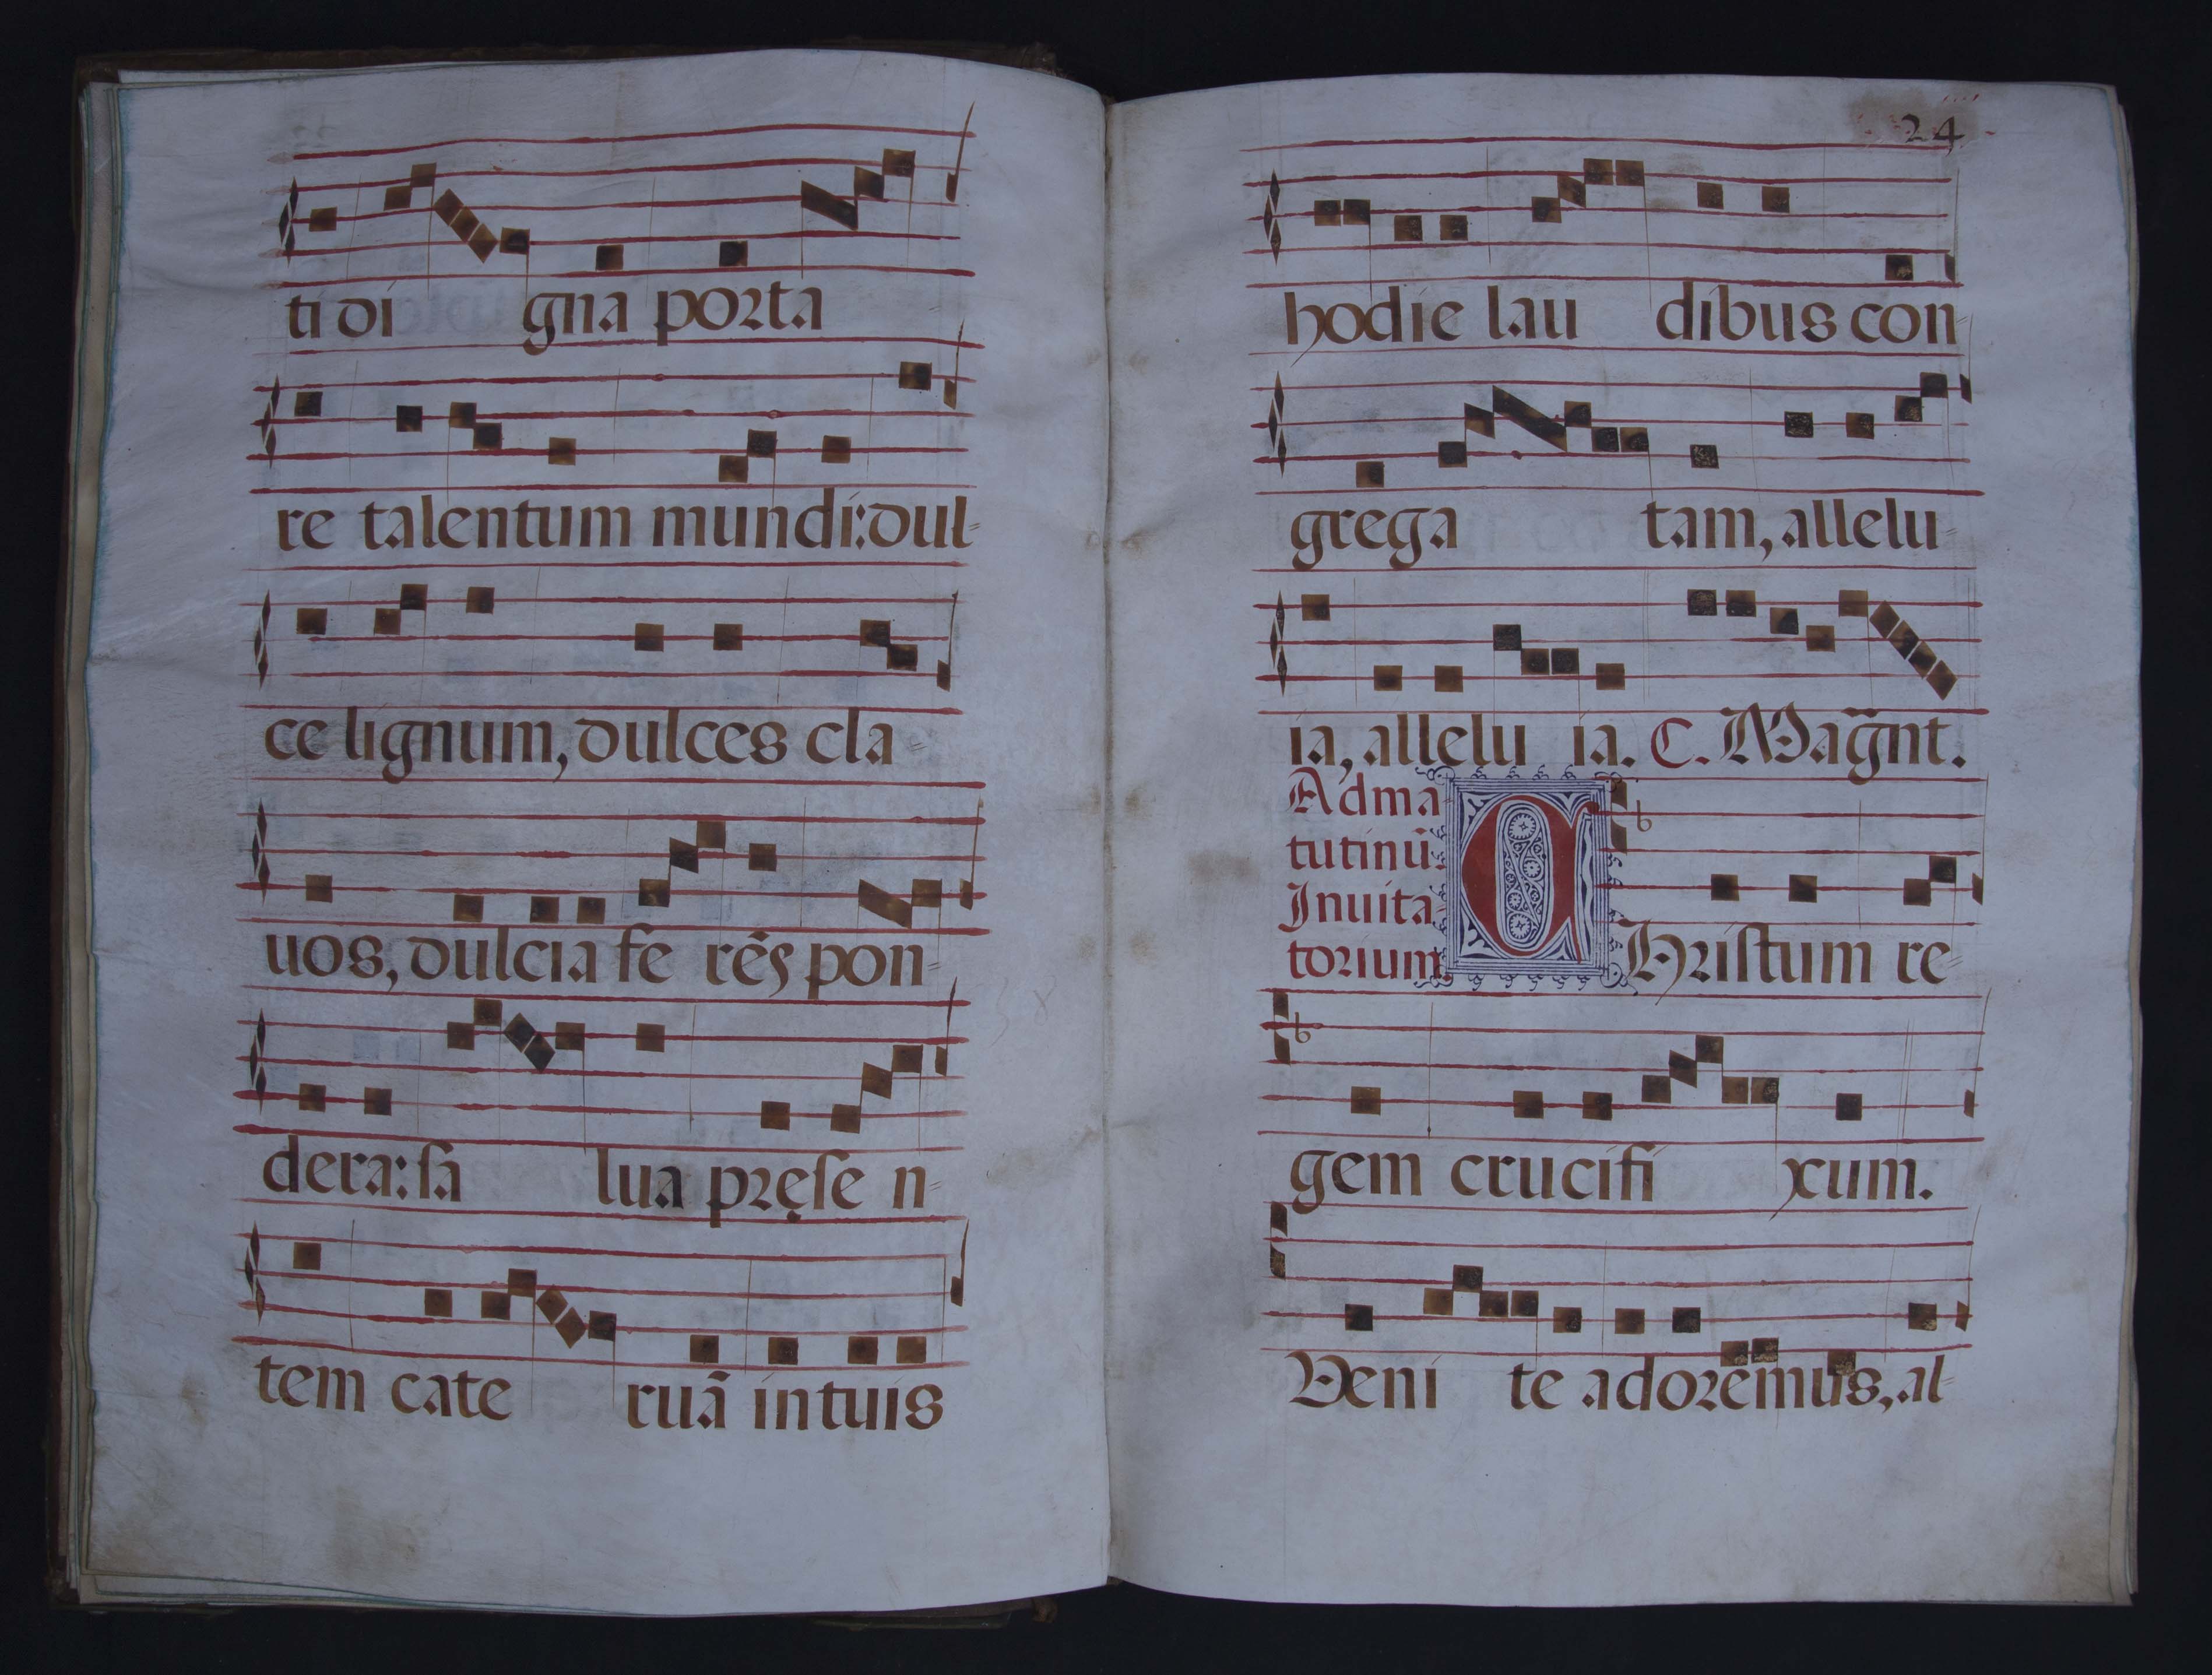 ti di gna porta
re talentum mundi: dul-
ce lignum, dulces cla-
uos, dulcia fe rēs pon-
dera: sa lua pręse n-
tem cate ruā in tuis
24
hodie lau dibus con-
grega tam, allelu-
ia, allelu ia. C. Mag̃nt.
Ad ma-
tutinū.
Inuita-
torium.
CHristum re-
gem crucifi xum.
Veni te adoremus, al-